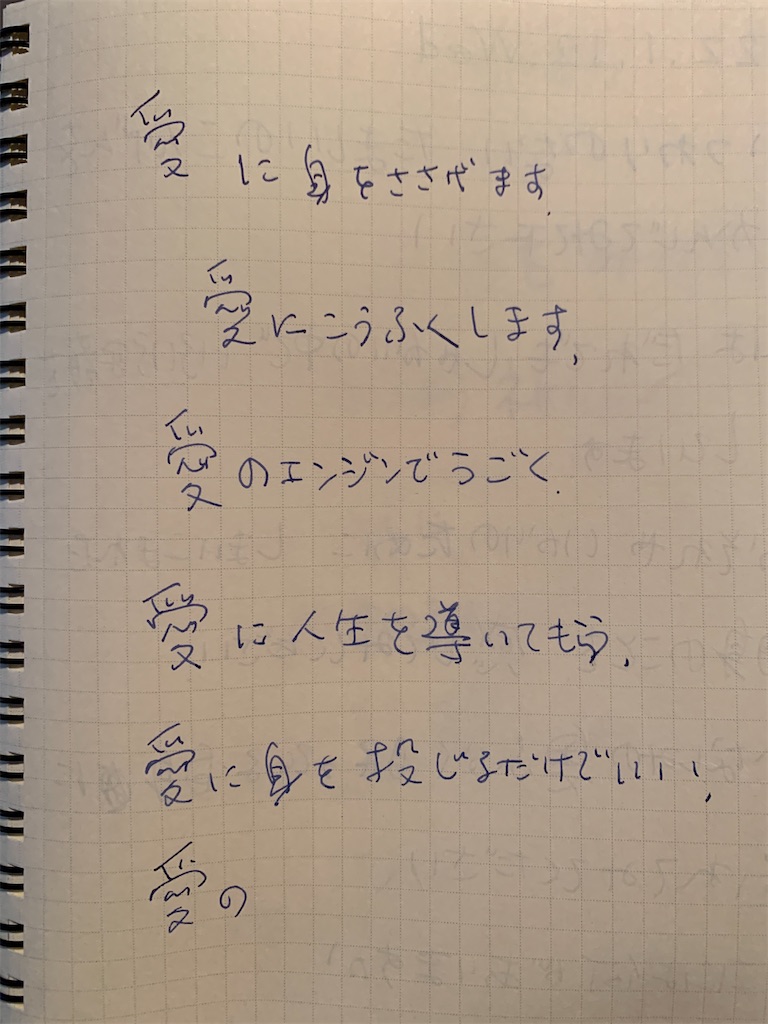 愛に身をささげます.
愛にこうふくします.
愛のエンジンでうごく.
愛に人生を導いてもらう.
愛に身を投じるだけでいい,
愛の